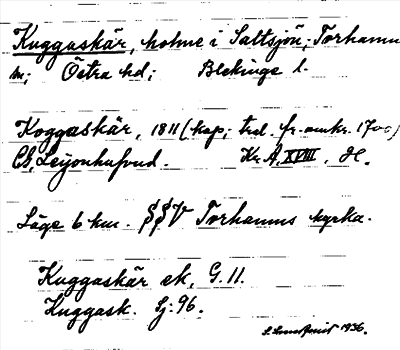 Kuggaskär, holme i Saltsjön; Torhamns
sn; Östra hd; Blekinge l.
Koggaskär, 1811 (kop; trol. fr. omkr. 1700)
Ch. Leijonhufvud. Kr. A, XVIII, H.
Läge 6 km. SSV Torhamns kyrka.
Kuggaskär ek, G. 11.
Kuggask. Sj: 96.
1936.